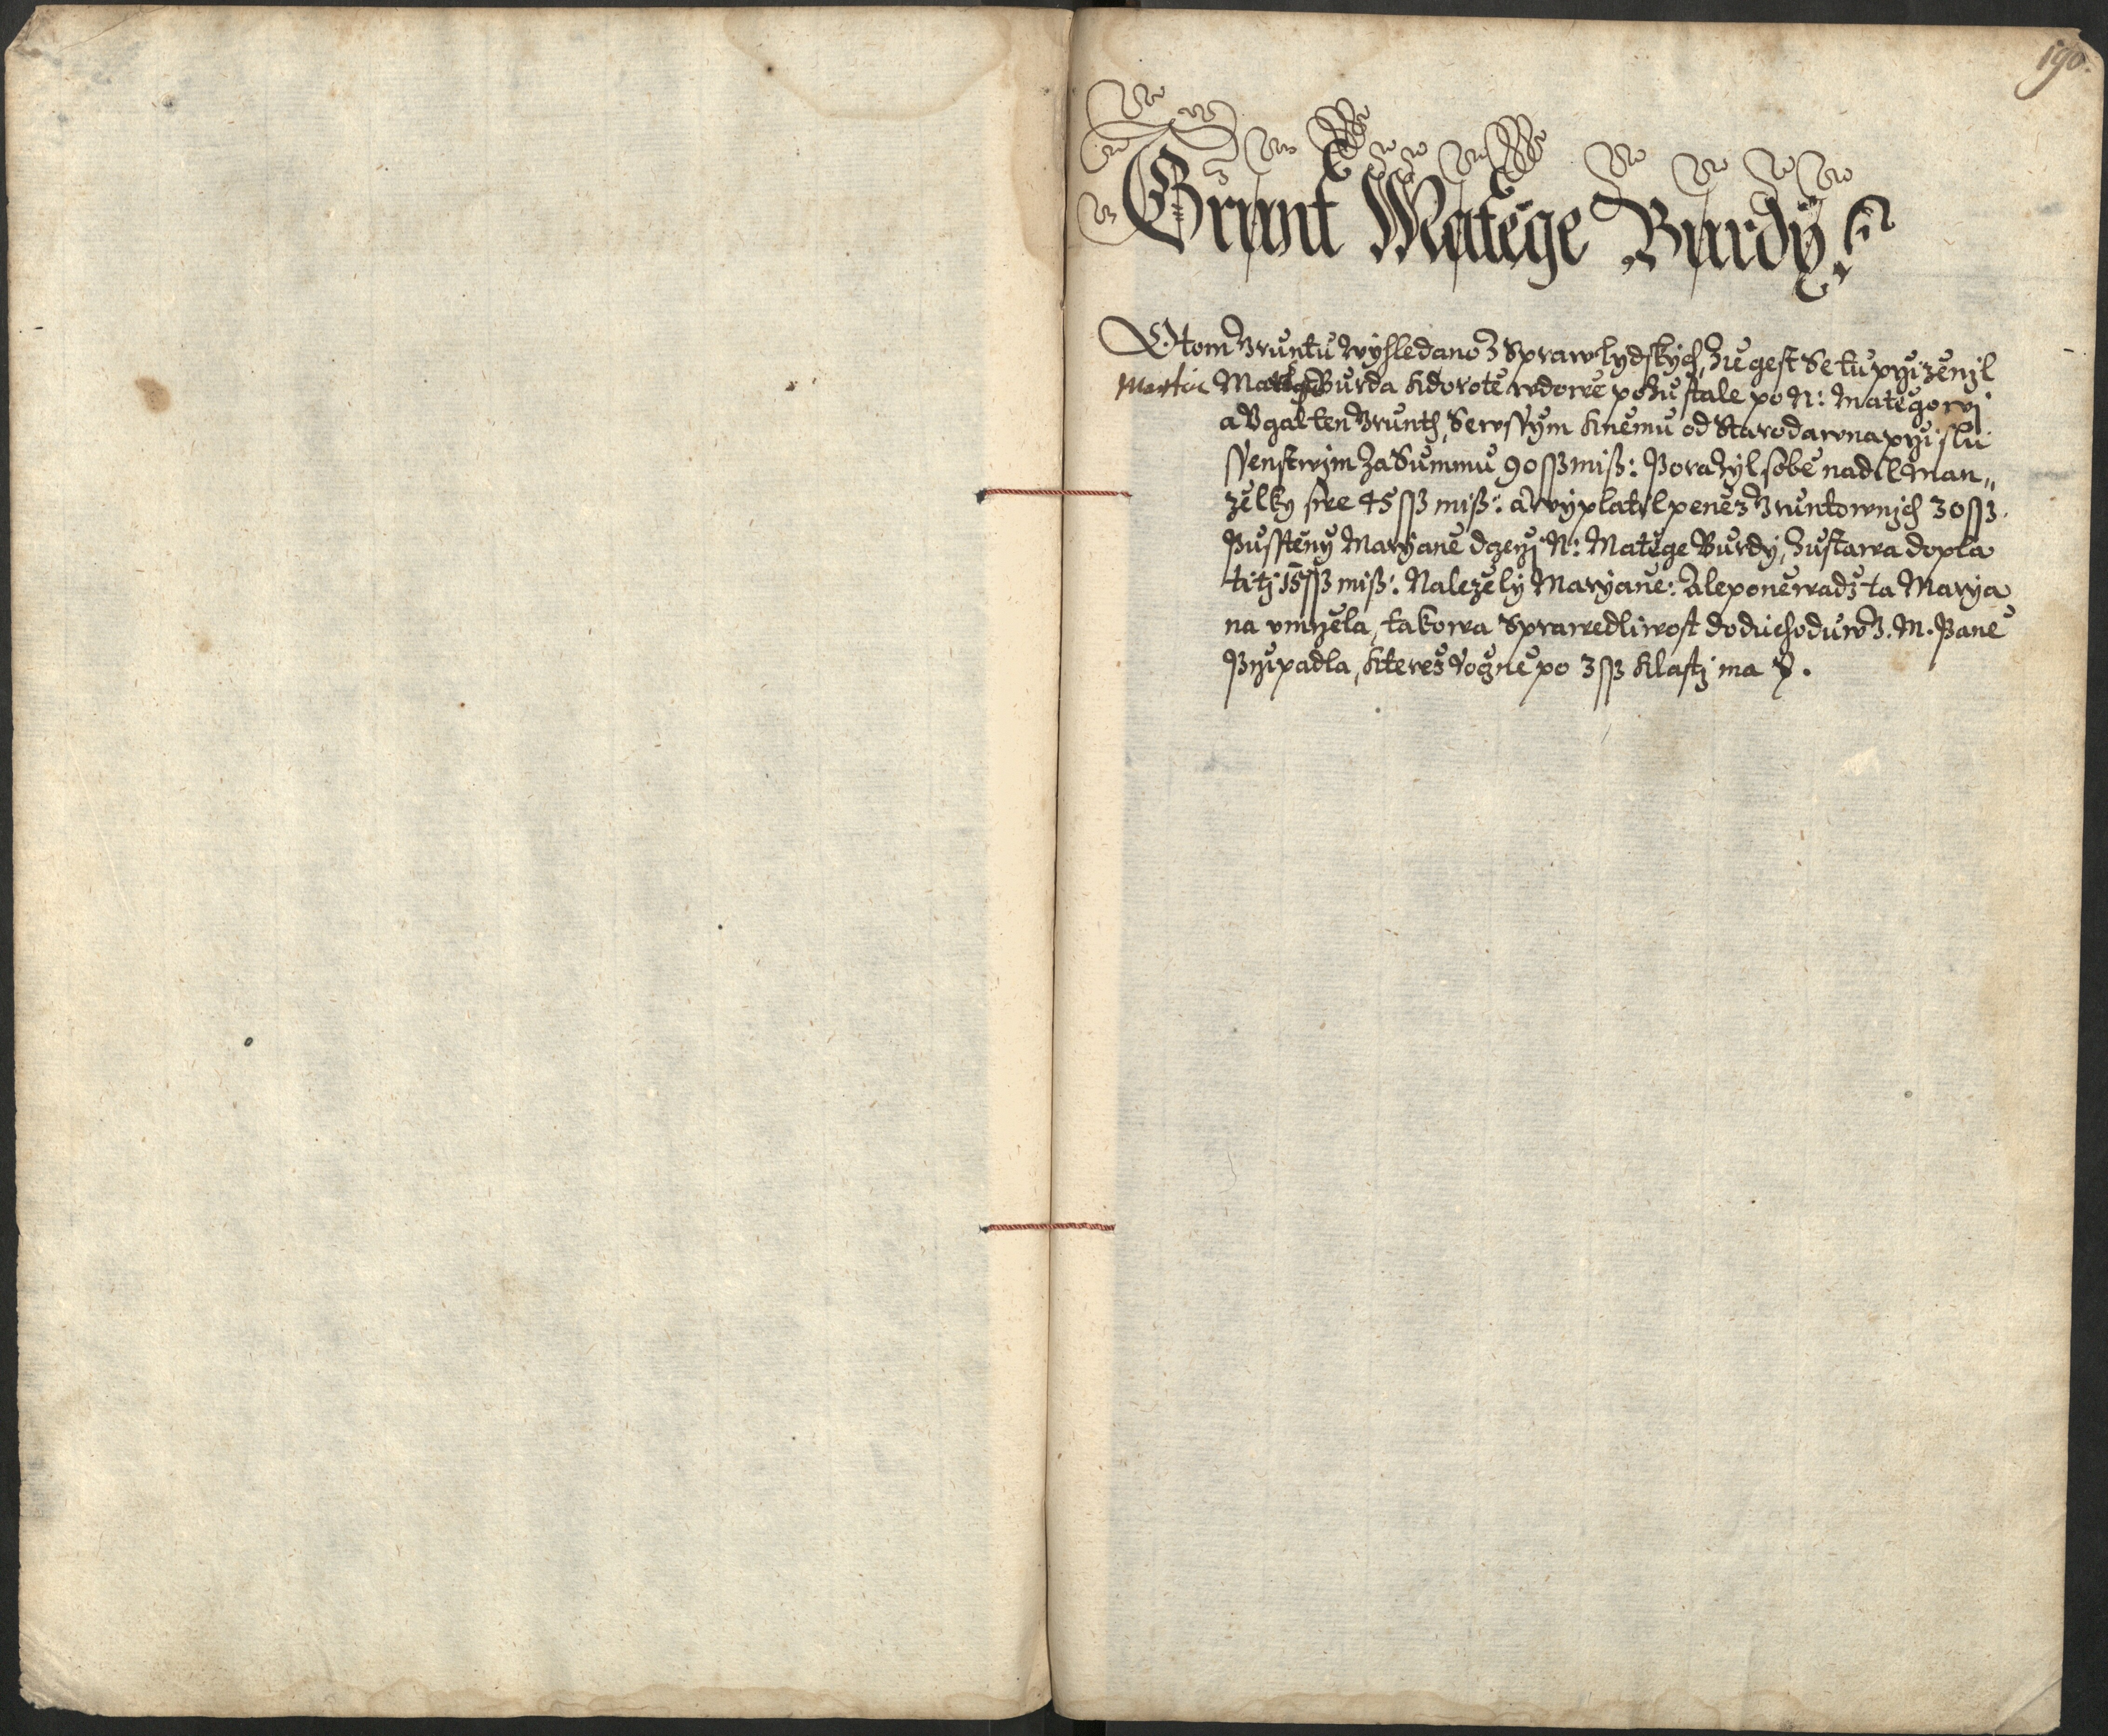 190.
Grunt Matěge Burdy
O tom Gruntu wyhledano z Spraw lydskych, že gest se tu przizenil
Martin Matěg Burda k Dorotě wdowě pozustale po N: Matěgowi
a Vgal ten Grunth, se wssym k němu od Starodawna przislu
ssenstwim za Summu 90 ssß miß: Porazyl sobě nadil man„
zelky swe 45 ssß miß: a wyplatil peněz Gruntownjch 30 ssß.
Pussteny Maryaně dczerzi N: Matěge Burdy, zustawa dopla
titj 15 ssß miß: Nalezely Maryaně: Ale poněwadž ta Marya
na vmrzela, takowa Sprawedliwost do duchoduw J. M. Paně
Przipadla, kterež rogně po 3 ssß klasti ma